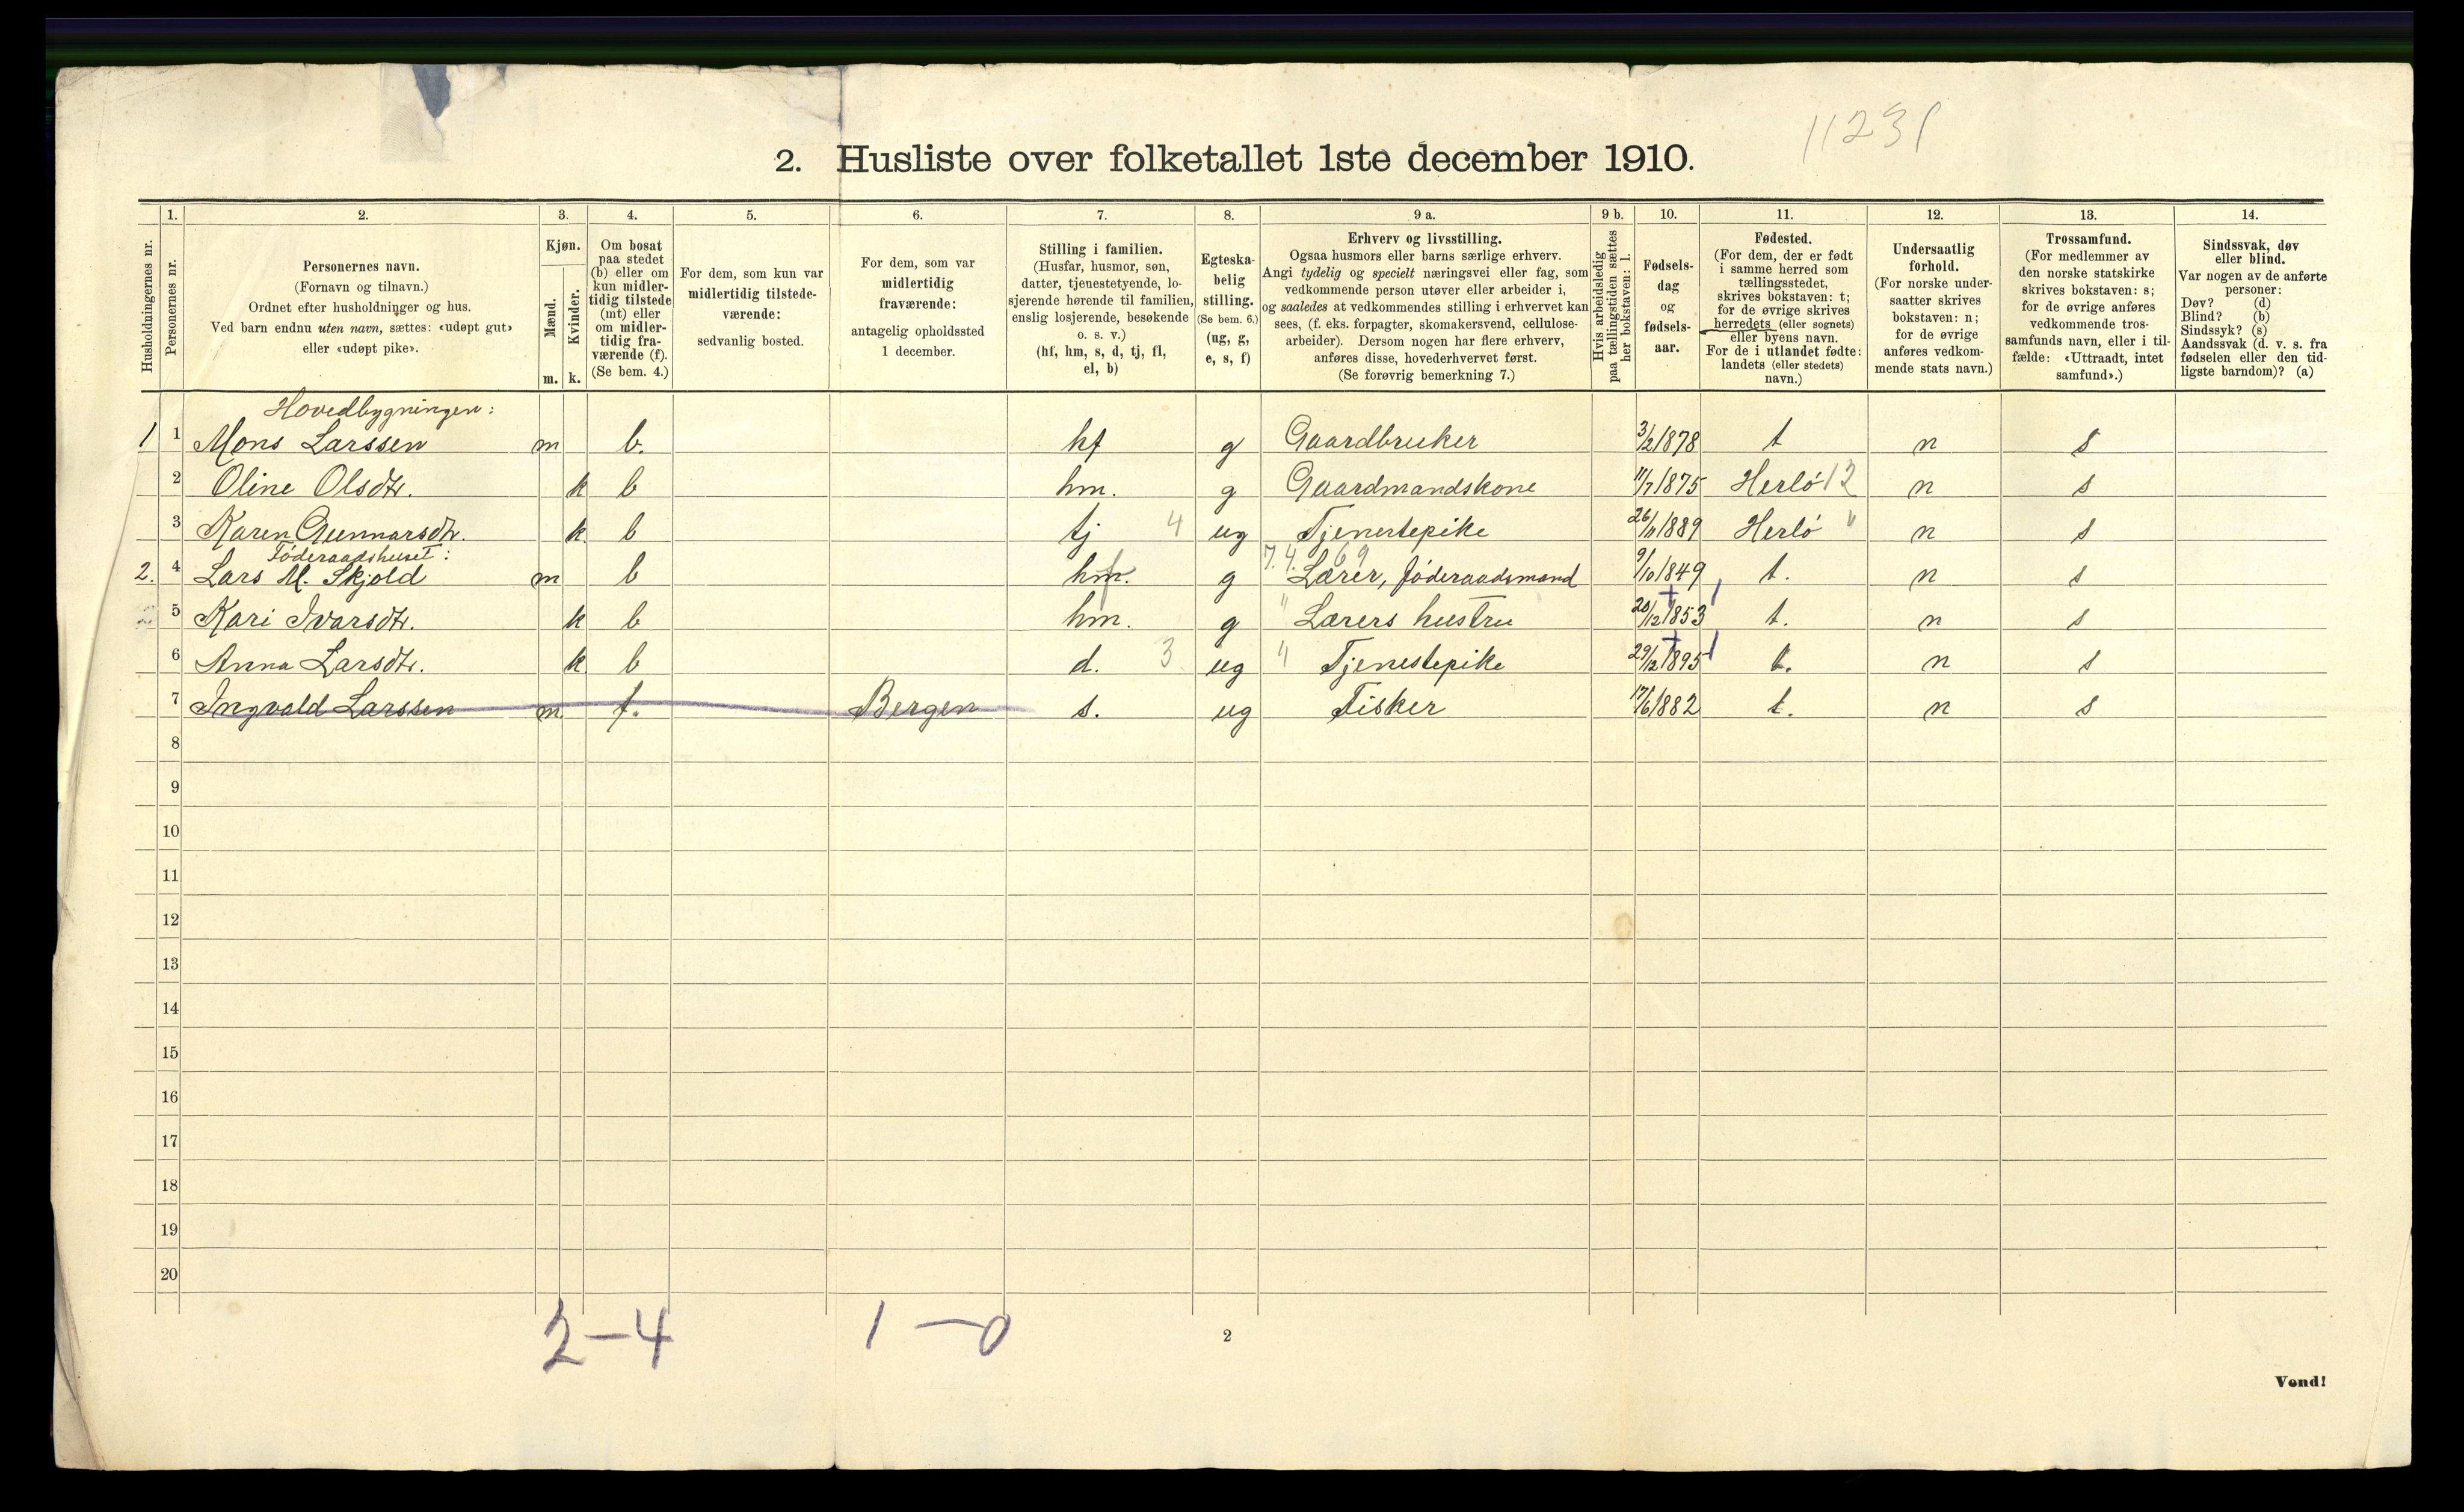 11231
2. Husliste over folketallet 1ste december 1910.
Husholdningernes nr.
1.
Personernes nr.
2.
Personernes navn.
(Fornavn og tilnavn.)
Ordnet efter husholdninger og hus.
Ved barn endnu uten navn, sættes: «udøpt gut»
eller «udøpt pike».
3.
Kjøn.
Mænd.
m.
Kvinder.
k.
4.
Om bosat
paa stedet
(b) eller om
kun midler-
tidig tilstede
(mt) eller
om midler-
tidig fra-
værende (f).
(Se bem. 4.)
5.
For dem, som kun var
midlertidig tilstede-
værende:
sedvanlig bosted.
6.
For dem, som var
midlertidig
fraværende:
antagelig opholdssted
1 december.
7.
Stilling i familien.
(Husfar, husmor, søn,
datter, tjenestetyende, lo-
sjerende hørende til familien,
enslig losjerende, besøkende
o. s. v.)
(hf, hm, s, d, tj, fl,
el, b)
8.
Egteska-
belig
stilling.
(Se bem. 6.)
(ug, g,
e, s, f)
9 a.
Erhverv og livsstilling.
Ogsaa husmors eller barns særlige erhverv.
Angi tydelig og specielt næringsvei eller fag, som
vedkommende person utøver eller arbeider i,
og saaledes at vedkommendes stilling i erhvervet kan
sees, (f. eks. forpagter, skomakersvend, cellulose-
arbeider). Dersom nogen har flere erhverv,
anføres disse, hovederhvervet først.
(Se forøvrig bemerkning 7.)
9 b.
Hvis arbeidsledig
paa tællingstiden sættes
her bokstaven: l.
10.
Fødsels-
dag
og
fødsels-
aar.
11.
Fødested.
(For dem, der er født
i samme herred som
tællingsstedet,
skrives bokstaven: t;
for de øvrige skrives
herredets (eller sognets)
eller byens navn.
For de i utlandet fødte:
landets (eller stedets)
navn.)
12.
Undersaatlig
forhold.
(For norske under-
saatter skrives
bokstaven: n;
for de øvrige
anføres vedkom-
mende stats navn.)
13.
Trossamfund.
(For medlemmer av
den norske statskirke
skrives bokstaven: s;
for de øvrige anføres
vedkommende tros-
samfunds navn, eller i til-
fælde: «Uttraadt, intet
samfund».)
14.
Sindssvak, døv
eller blind.
Var nogen av de anførte
personer:
Døv? (d)
Blind? (b)
Sindssyk? (s)
Aandssvak (d. v. s. fra
fødselen eller den tid-
ligste barndom)? (a)
Hovedbygningen:
1 1 Mons Larssen m b. hf g Gaardbruker 3/2 1878 t n s
2 Oline Olsdtr. k b hm. g Gaardmandskone 11/7 1875 Herlø 12 n s
3 Karen Gunnarsdtr. k b tj 4 ug Tjenestepike 26/11 1889 Herlø " n s
Føderaadshuset:
2. 4 Lars M. Skjold m b hf. g 7.4. 69 Lærer, føderaadsmand 9/10 1849 t. n s
5 Kari Ivarsdtr. k b hm. g " Lærers hustru 20/12 1853 t. n s
6 Anna Larsdtr. k b d. 3 ug " Tjenestepike 29/12 1895 t. n s
7 Ingvald Larssen m. f. Bergen s. ug Fisker 17/6 1882 t. n s
8
9
10
11
12
13
14
15
16
17
18
19
20
2—4 1—0
2
Vend!